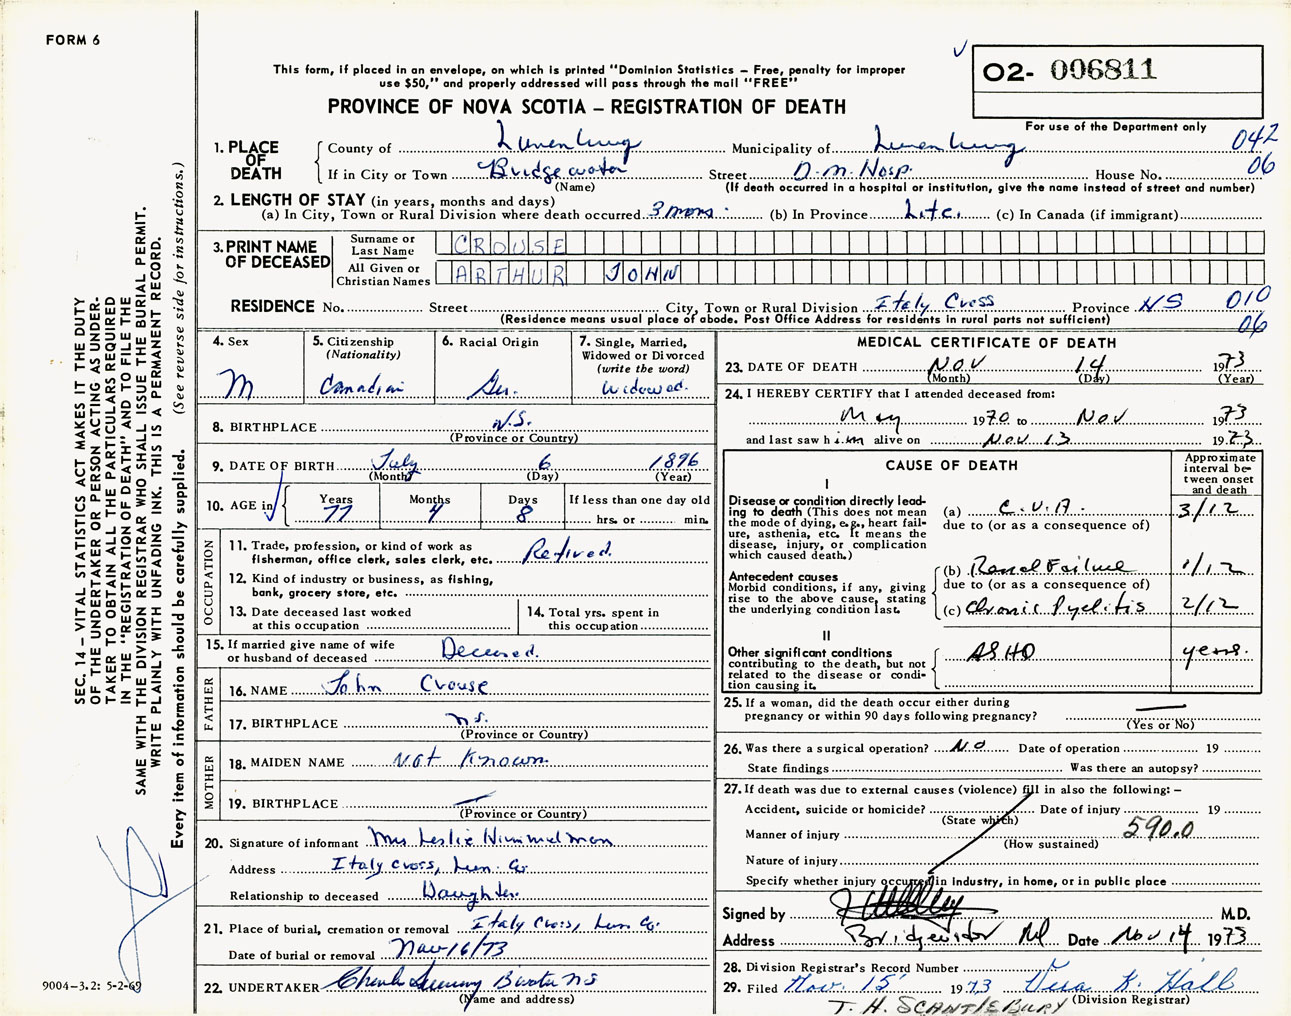 FORM 6
This form, if placed in an envelope, on which is printed "Dominion Statistics – Free, penalty for improper
use $50," and properly addressed will pass through the mail "FREE"
PROVINCE OF NOVA SCOTIA – REGISTRATION OF DEATH
02- 006811
For use of the Department only
042
06
1. PLACE OF DEATH
County of Lunenburg Municipality of Lunenburg
If in City or Town Bridgewater Street D.M. Hosp. House No.
(Name) (If death occurred in a hospital or institution, give the name instead of street and number)
2. LENGTH OF STAY (in years, months and days)
(a) In City, Town or Rural Division where death occurred 3 mons. (b) In Province Life. (c) In Canada (if immigrant)
3. PRINT NAME OF DECEASED
Surname or Last Name CROUSE
All Given or Christian Names ARTHUR JOHN
RESIDENCE No. Street City, Town or Rural Division Italy Cross Province NS 010
(Residence means usual place of abode. Post Office Address for residents in rural parts not sufficient) 06
4. Sex M
5. Citizenship (Nationality) Canadian
6. Racial Origin Ger.
7. Single, Married, Widowed or Divorced (write the word) Widowed.
8. BIRTHPLACE N.S.
(Province or Country)
9. DATE OF BIRTH July 6 1896
(Month) (Day) (Year)
10. AGE in Years 77 Months 4 Days 8 If less than one day old hrs. or min.
OCCUPATION
11. Trade, profession, or kind of work as
fisherman, office clerk, sales clerk, etc. Retired.
12. Kind of industry or business, as fishing,
bank, grocery store, etc.
13. Date deceased last worked
at this occupation
14. Total yrs. spent in
this occupation
15. If married give name of wife
or husband of deceased Deceased.
FATHER
16. NAME John Crouse
17. BIRTHPLACE N.S.
(Province or Country)
MOTHER
18. MAIDEN NAME Not Known
19. BIRTHPLACE —
(Province or Country)
20. Signature of informant Mrs Leslie Himmelman
Address Italy Cross, Lun. Co.
Relationship to deceased Daughter
21. Place of burial, cremation or removal Italy Cross, Lun Co.
Date of burial or removal Nov 16/73
22. UNDERTAKER NS
(Name and address)
MEDICAL CERTIFICATE OF DEATH
23. DATE OF DEATH Nov 14 1973
(Month) (Day) (Year)
24. I HEREBY CERTIFY that I attended deceased from:
May 1970 to Nov 1973
and last saw him alive on Nov 13 1973
CAUSE OF DEATH
Approximate interval between onset and death
I
Disease or condition directly lead-
ing to death (This does not mean
the mode of dying, e.g., heart fail-
ure, asthenia, etc. It means the
disease, injury, or complication
which caused death.)
(a) C.V.A. 3/12
due to (or as a consequence of)
Antecedent causes
Morbid conditions, if any, giving
rise to the above cause, stating
the underlying condition last.
(b) Renal Failure 1/12
due to (or as a consequence of)
(c) Chronic Pyelitis 2/12
II
Other significant conditions
contributing to the death, but not
related to the disease or condi-
tion causing it.
ASHD years.
25. If a woman, did the death occur either during
pregnancy or within 90 days following pregnancy? —
(Yes or No)
26. Was there a surgical operation? No Date of operation 19
State findings Was there an autopsy?
27. If death was due to external causes (violence) fill in also the following: –
Accident, suicide or homicide? Date of injury 19
(State which)
Manner of injury 590.0
(How sustained)
Nature of injury
Specify whether injury occurred in industry, in home, or in public place
Signed by M.D.
Address Bridgewater Date Nov 14 1973
28. Division Registrar's Record Number
29. Filed Nov. 15 1973 Vera K. Hall
(Division Registrar)
T. H. SCANTLEBURY
SEC. 14 – VITAL STATISTICS ACT MAKES IT THE DUTY
OF THE UNDERTAKER OR PERSON ACTING AS UNDER-
TAKER TO OBTAIN ALL THE PARTICULARS REQUIRED
IN THE "REGISTRATION OF DEATH" AND TO FILE THE
SAME WITH THE DIVISION REGISTRAR WHO SHALL ISSUE THE BURIAL PERMIT.
WRITE PLAINLY WITH UNFADING INK. THIS IS A PERMANENT RECORD.
Every item of information should be carefully supplied. (See reverse side for instructions.)
9004-3.2: 5-2-69